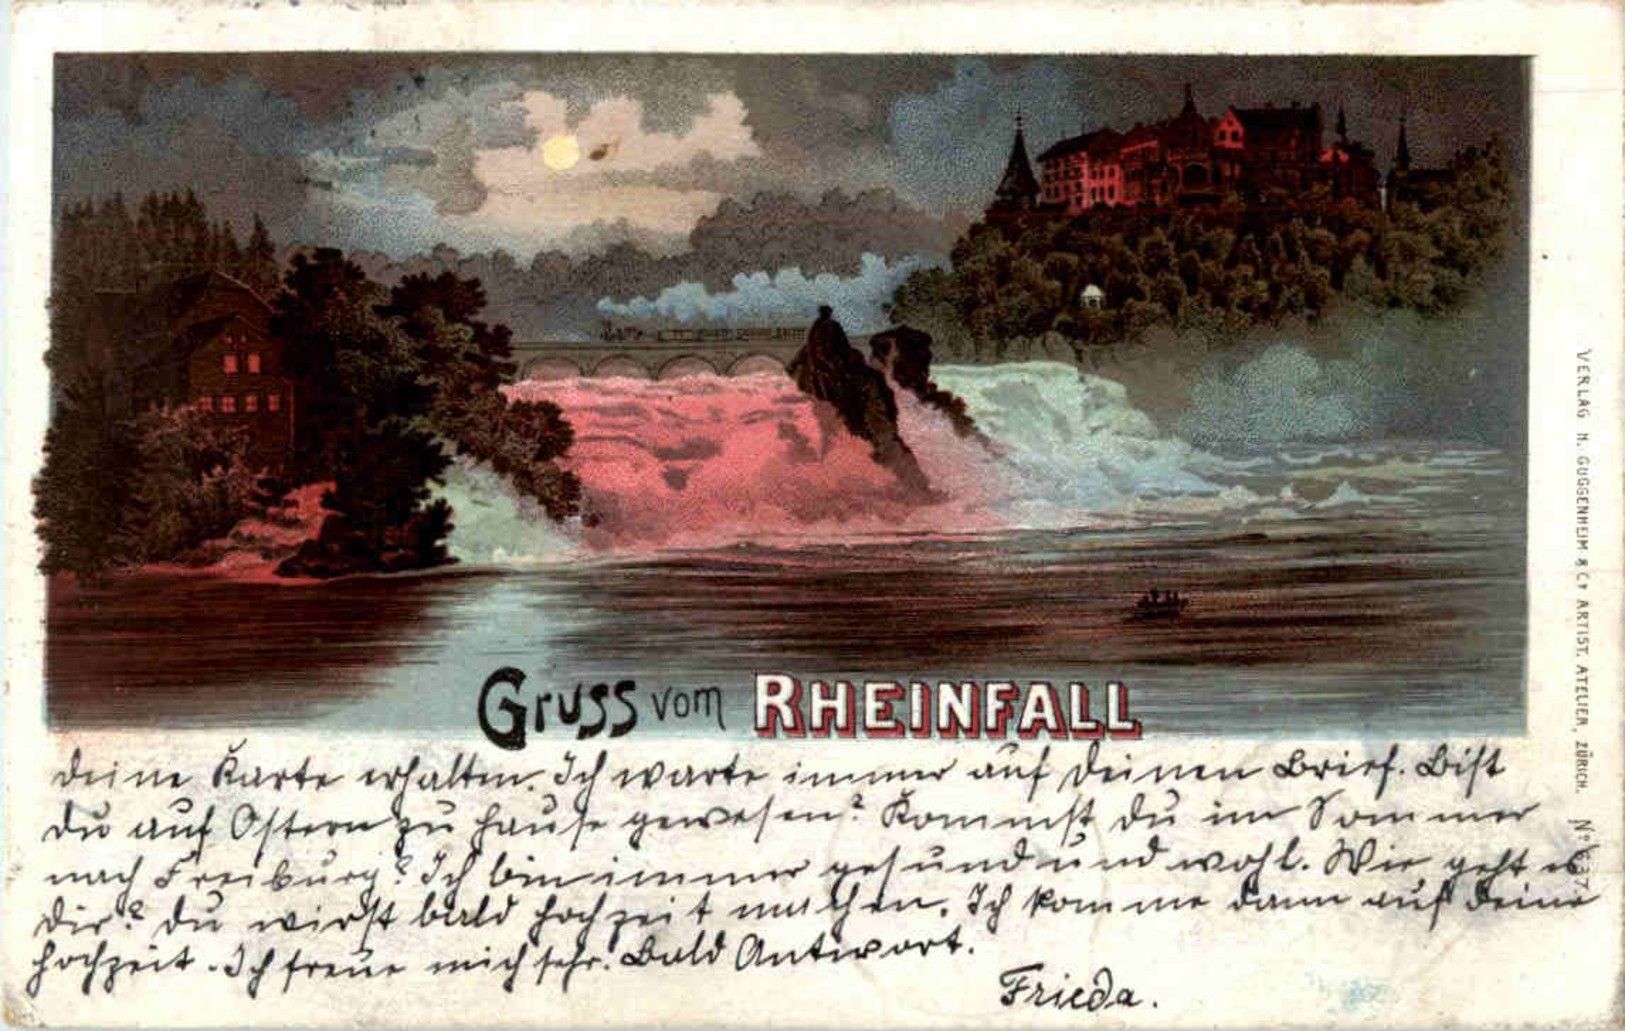 Gruss vom RHEINFALL
deine Karte erhalten. Ich warte immer auf deinen Brief. Bist
du auf Ostern zu hause gewesen? Kommst du im Sommer
nach Freiburg? Ich bin immer gesund und wohl. Wie geht es
dir? du wirst bald hochzeit machen. Ich komme dann auf deine
hochzeit. Ich freue mich sehr. Bald Antwort.
Frieda.
VERLAG H. GUGGENHEIM & Co ARTIST. ATELIER, ZÜRICH. No